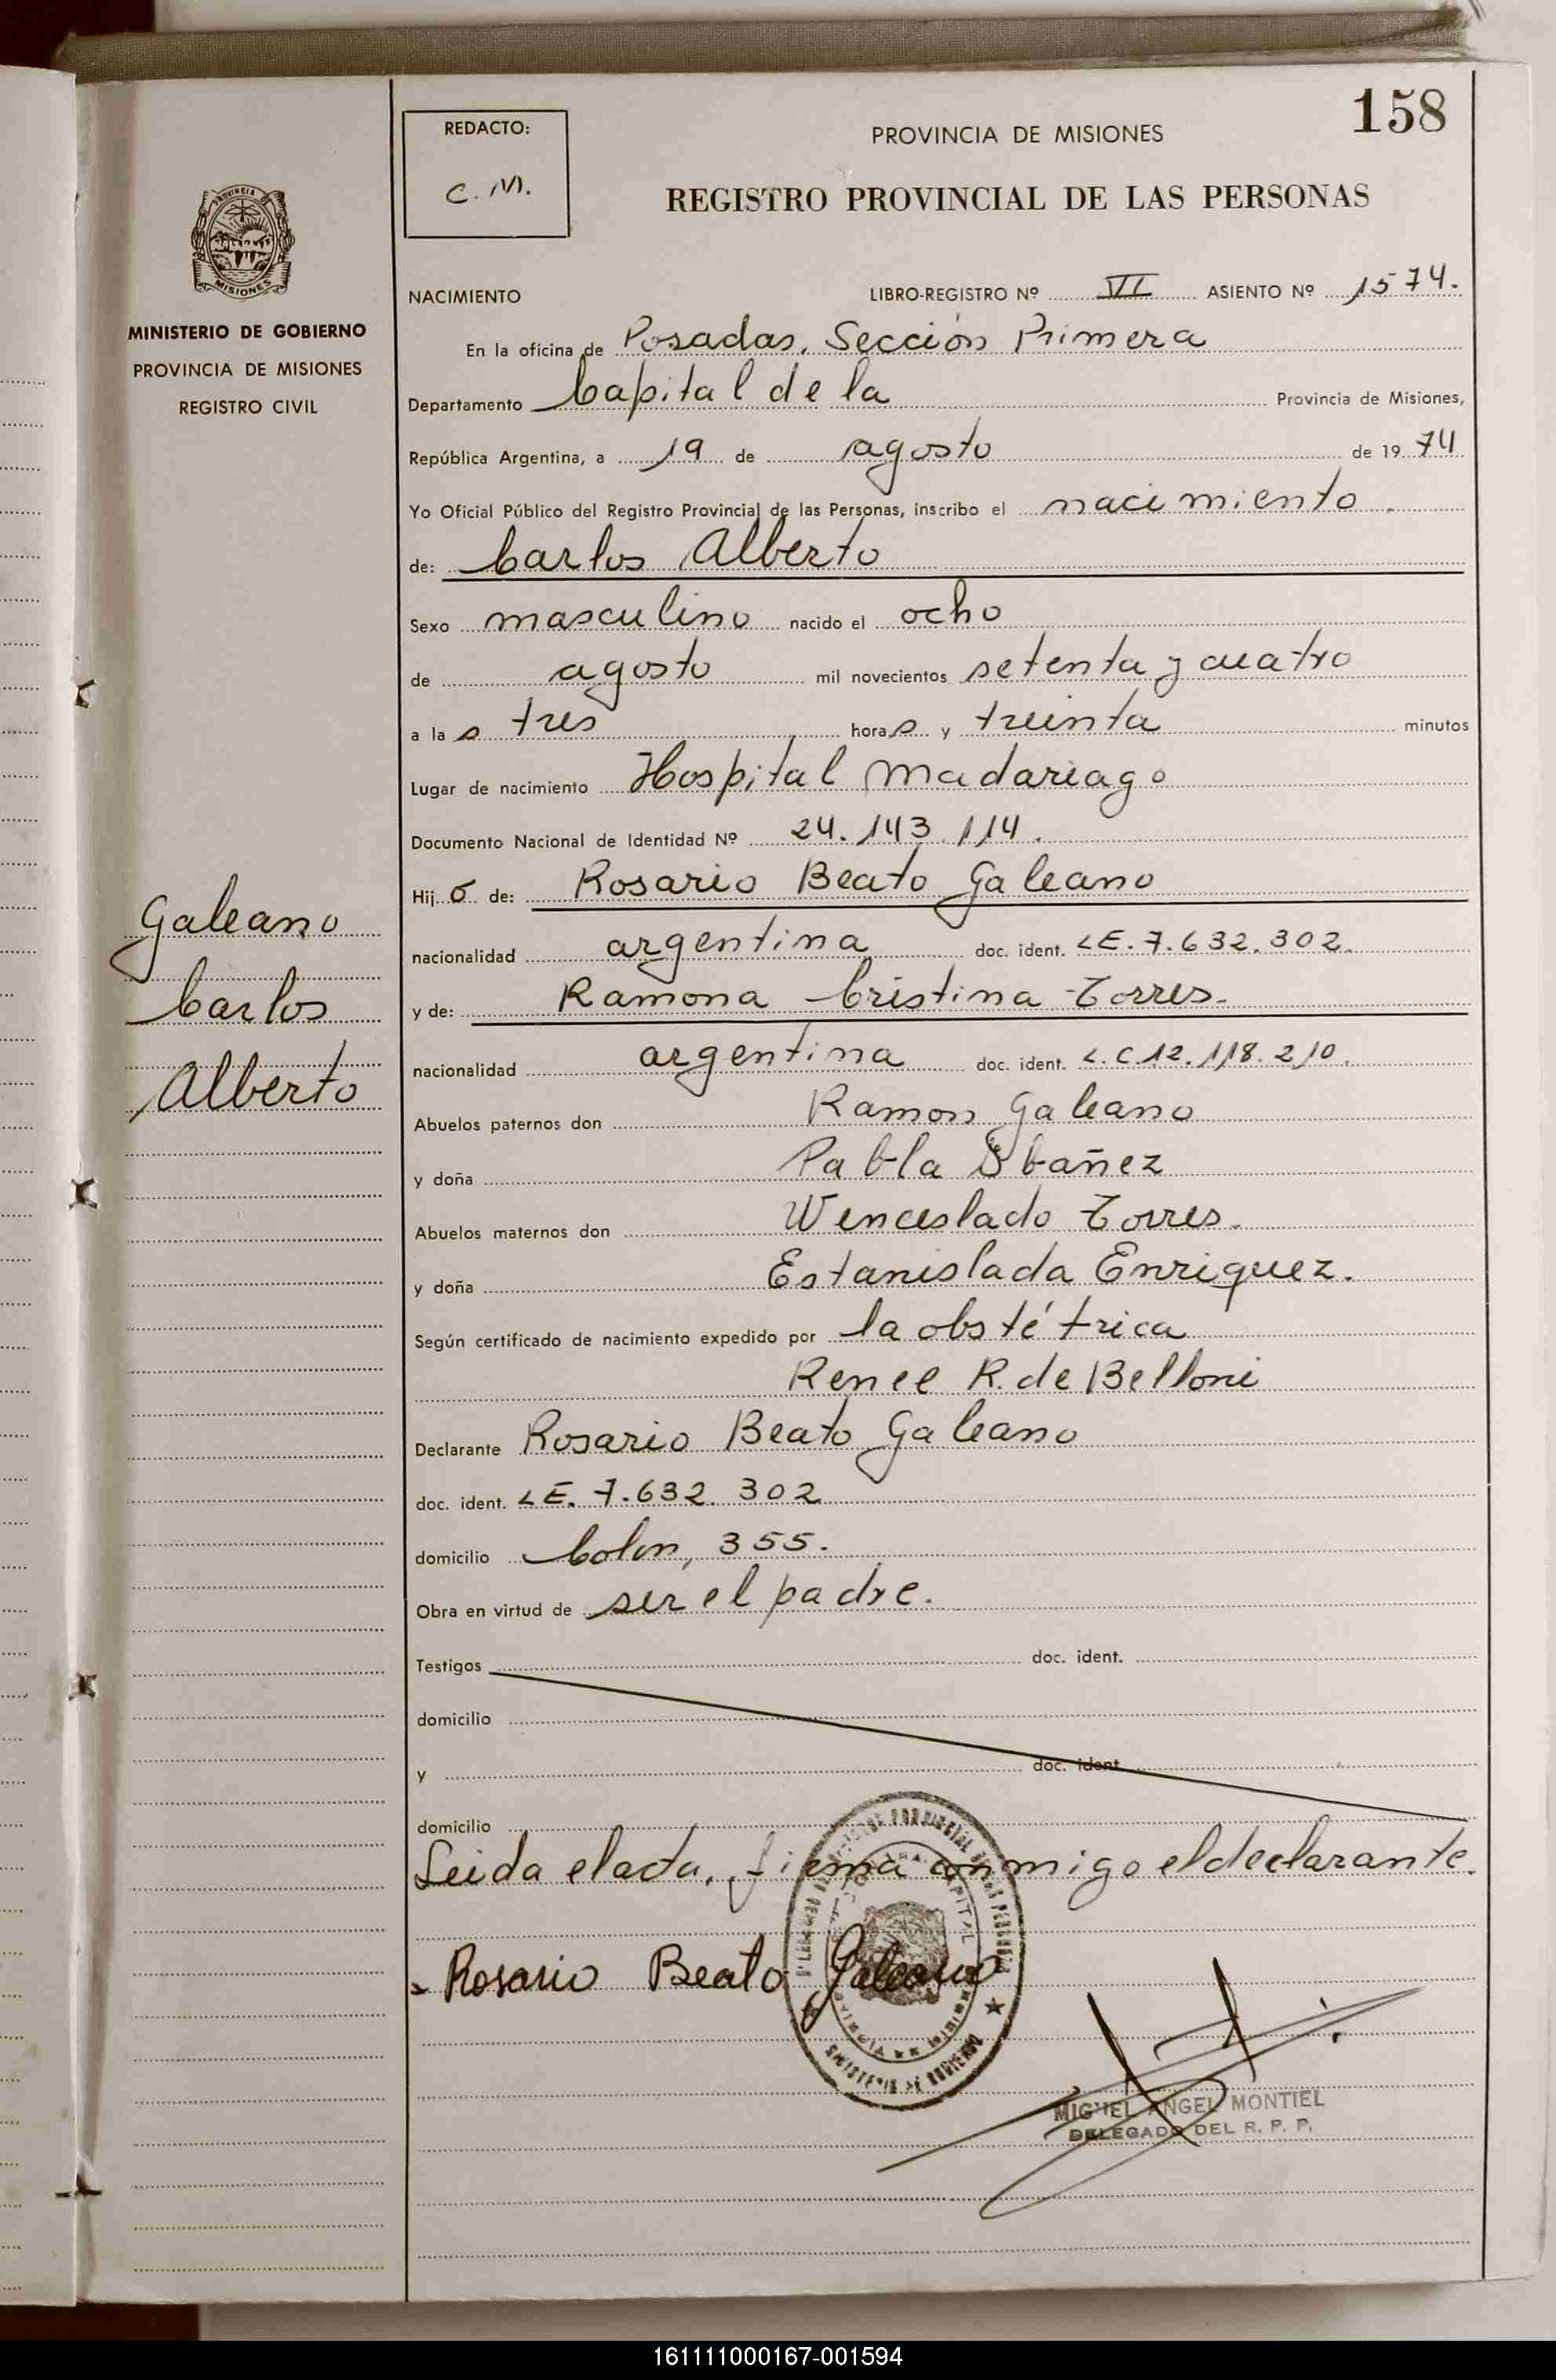 158
REDACTO:
C. M.
PROVINCIA DE MISIONES
REGISTRO PROVINCIAL DE LAS PERSONAS
PROVINCIA
MISIONES
MINISTERIO DE GOBIERNO
PROVINCIA DE MISIONES
REGISTRO CIVIL
Galeano
Carlos
Alberto
NACIMIENTO LIBRO-REGISTRO Nº VI ASIENTO Nº 1574.
En la oficina de Posadas, Sección Primera
Departamento Capital de la Provincia de Misiones,
República Argentina, a 19 de agosto de 1974
Yo Oficial Público del Registro Provincial de las Personas, inscribo el nacimiento
de: Carlos Alberto
Sexo masculino nacido el ocho
de agosto mil novecientos setenta y cuatro
a las tres horas y treinta minutos
Lugar de nacimiento Hospital Madariaga
Documento Nacional de Identidad Nº 24.143.114.
Hijo de: Rosario Beato Galeano
nacionalidad argentina doc. ident. LE. 7.632.302.
y de: Ramona Cristina Torres.
nacionalidad argentina doc. ident. L.C.12.118.210.
Abuelos paternos don Ramon Galeano
y doña Pabla Ibañez
Abuelos maternos don Wenceslado Torres.
y doña Estanislada Enriquez.
Según certificado de nacimiento expedido por la obstétrica
Renee R. de Belloni
Declarante Rosario Beato Galeano
doc. ident. LE. 7.632.302
domicilio Colon, 355.
Obra en virtud de ser el padre.
Testigos doc. ident.
domicilio
y doc. ident.
domicilio
Leida el acta, firma conmigo el declarante.
Rosario Beato Galeano
MIGUEL ANGEL MONTIEL
DELEGADO DEL R. P. P.
161111000167-001594